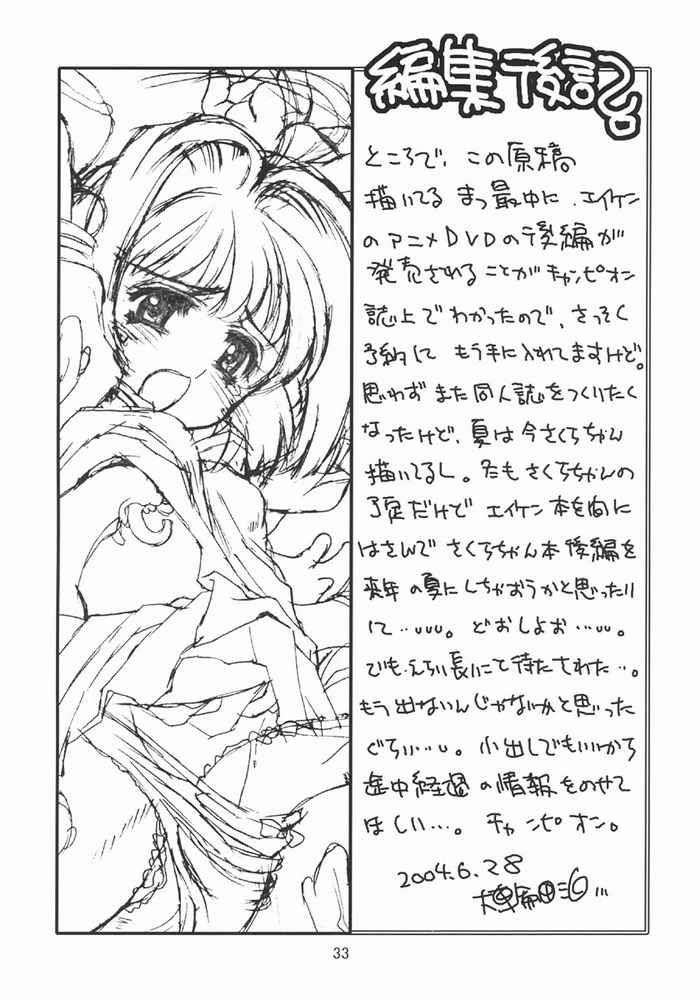 編集後記
ところで、この原稿
描いてる まっ最中に、エイケン
のアニメDVDの後編が
発売されることがチャンピオン
誌上でわかったので、さっそく
予約して もう手に入れてますけど。
思わず また同人誌をつくりたく
なったけど、夏は今さくらちゃん
描いてるし。冬もさくらちゃんの
予定だけど エイケン本を間に
はさんで さくらちゃん本後編を
来年の夏にしちゃおうかと思ったり
して…。どおしよお…。
でも えらい長いこと待たされた…。
もう出ないんじゃないかと思った
ぐらい…。小出しでもいいから
途中経過の情報をのせて
ほしい…。チャンピオン。
2004.6.28
33